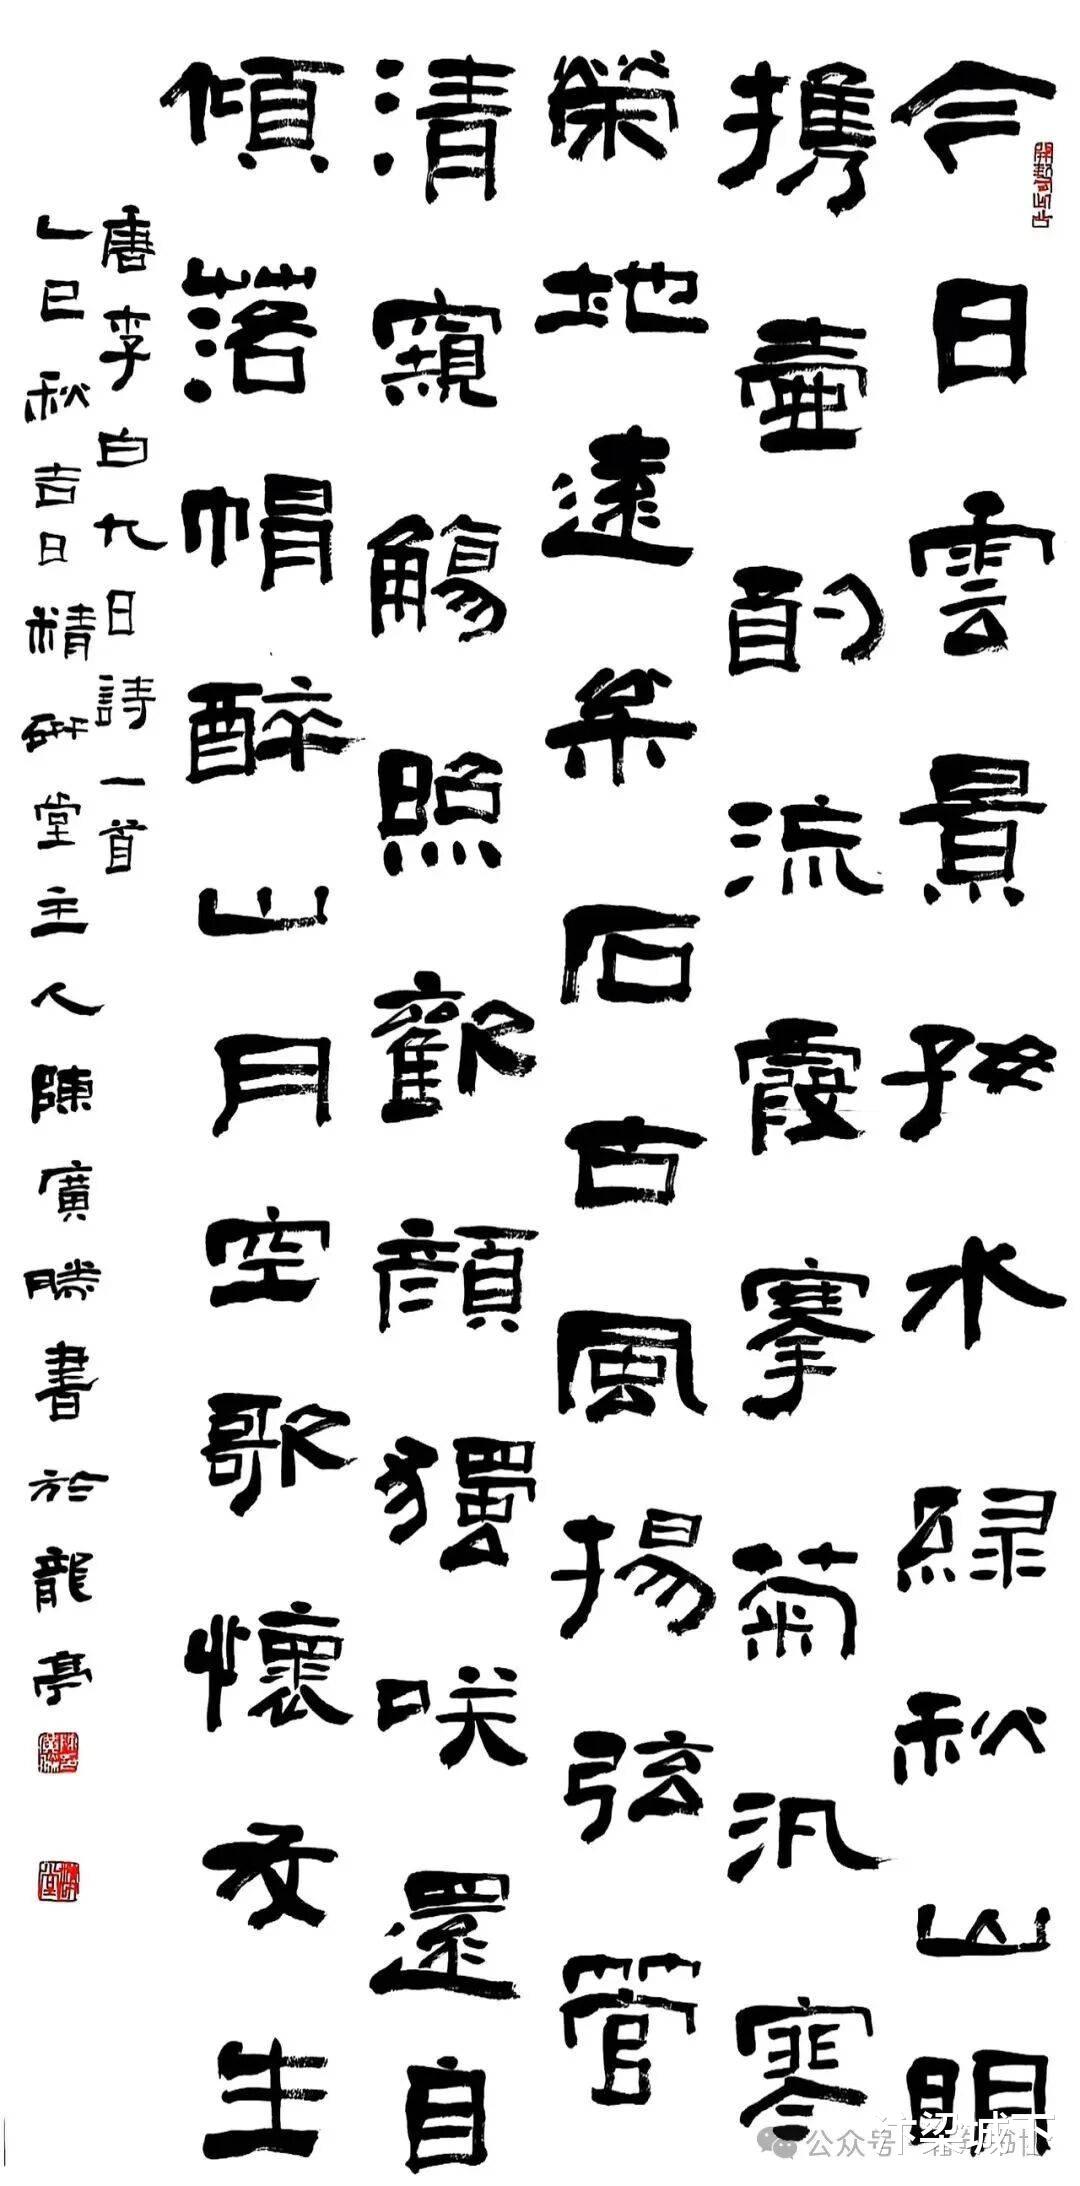 今日雲景好水綠秋山明
携壺酌流霞搴菊汎寒
榮地遠枀石古風揚弦管
清窺觴照歡顏獨咲還自
傾落帽醉山月空歌懷友生
唐李白九日詩一首
乙巳秋吉日精研堂主人陳廣勝書於龍亭
公众号
汴梁城下